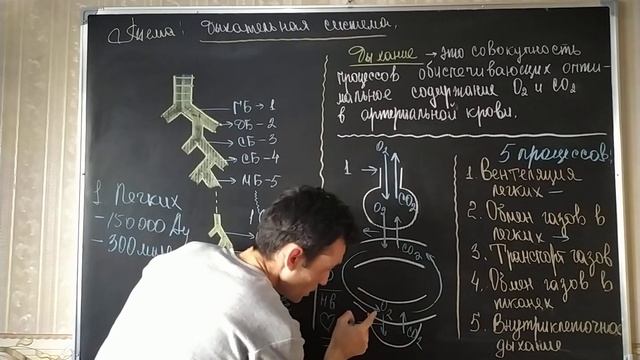 Тема: Дыхательная система.
Дыхание → это совокупность
процессов обуспечивающих опти-
мальное содержание O₂ и CO₂
в артериальной крови.
ГБ → 1
ДБ - 2
СБ - 3
СБ - 4
МБ - 5
1
Легких
- 150 000 Ду
- 300 млн
1
O₂
O₂
CO₂
CO₂
O₂
CO₂
НВ
5 процессов:
1. Вентеляция
легких -
2. Обмен газов в
легких →
3. Транспорт газов
4. Обмен газов в
тканях
5. Внутриклеточное
дыхание